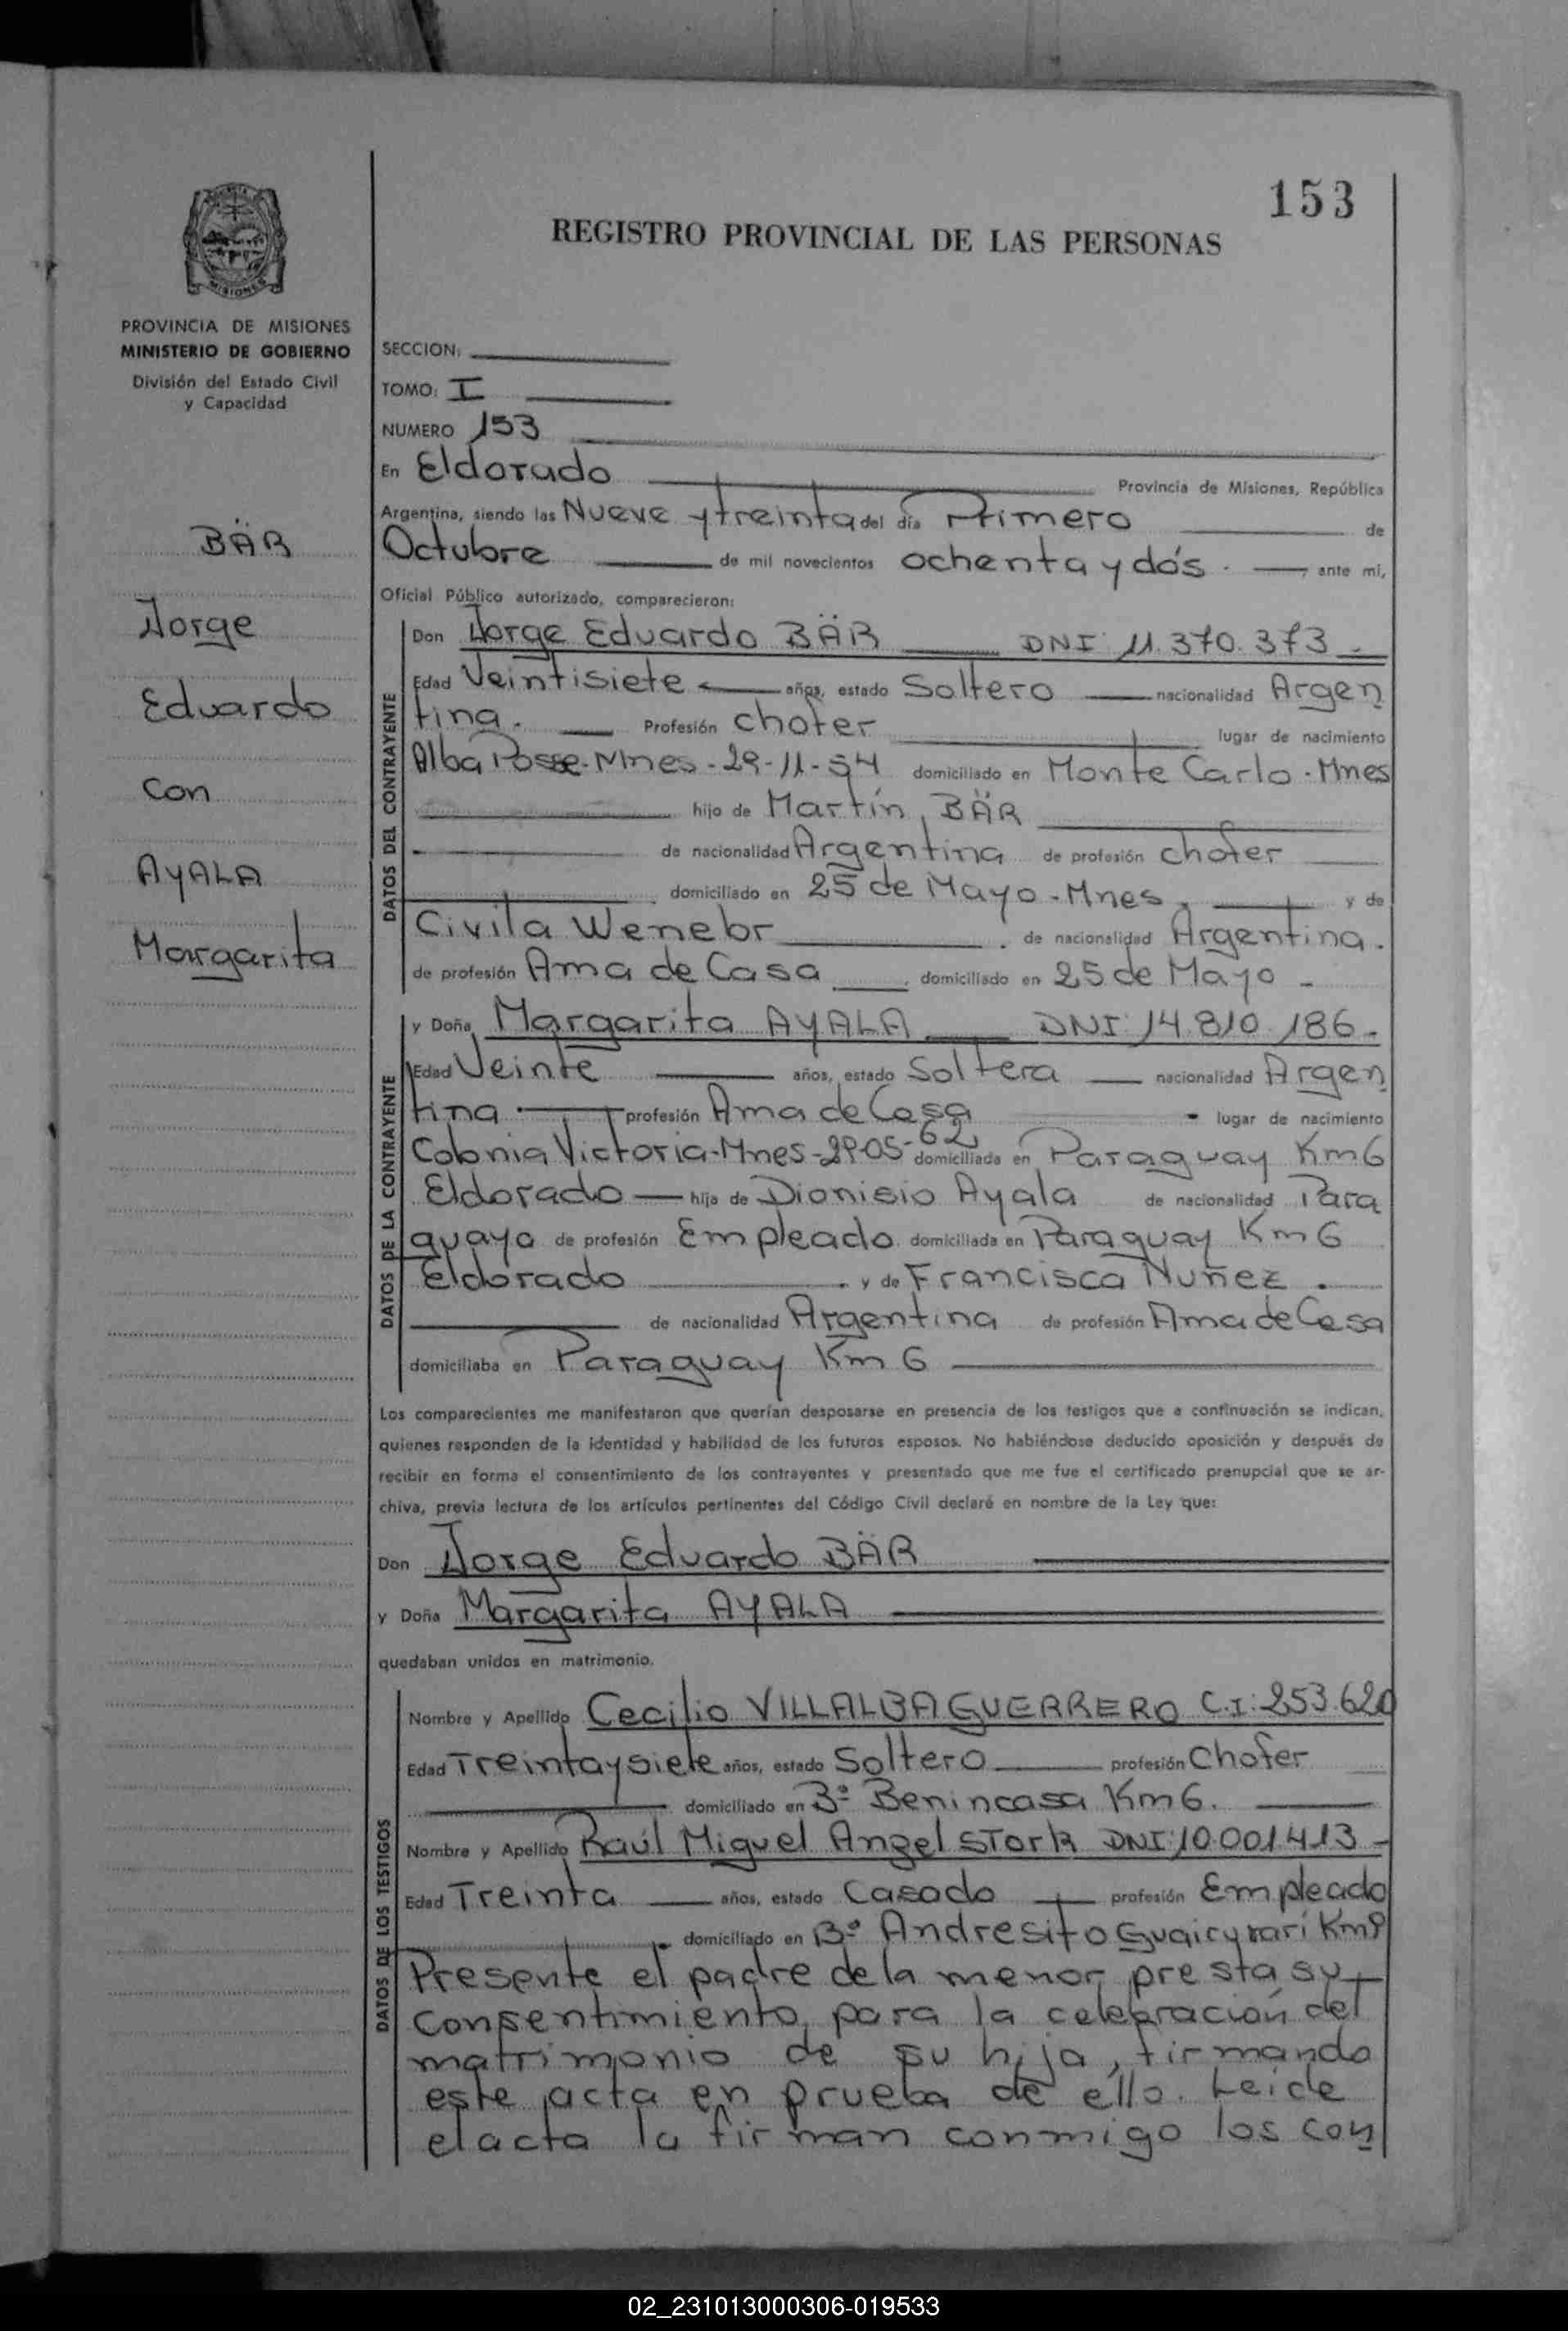 153
REGISTRO PROVINCIAL DE LAS PERSONAS
MISIONES
PROVINCIA DE MISIONES
MINISTERIO DE GOBIERNO
División del Estado Civil
y Capacidad
BÄR
Jorge
Eduardo
Con
AYALA
Margarita
SECCION:
TOMO: I
NUMERO 153
En Eldorado Provincia de Misiones, República
Argentina, siendo las Nueve y treinta del día Primero de
Octubre de mil novecientos ochenta y dós. ante mi,
Oficial Público autorizado, comparecieron:
DATOS DEL CONTRAYENTE
Don Jorge Eduardo BÄR DNI 11.370.373.
Edad Veintisiete años, estado Soltero nacionalidad Argen
tina. Profesión chofer lugar de nacimiento
Alba Posse-Mnes-29-11-54 domiciliado en Monte Carlo-Mnes
hijo de Martín BÄR
de nacionalidad Argentina de profesión chofer
domiciliado en 25 de Mayo-Mnes y de
Civila Wenebr de nacionalidad Argentina.
de profesión Ama de Casa domiciliado en 25 de Mayo -
DATOS DE LA CONTRAYENTE
y Doña Margarita AYALA DNI 14.810.186-
Edad Veinte años, estado Soltera nacionalidad Argen
tina profesión Ama de Casa lugar de nacimiento
Colonia Victoria-Mnes-29-05-62 domiciliada en Paraguay Km6
Eldorado hija de Dionisio Ayala de nacionalidad Para
guaya de profesión Empleado domiciliada en Paraguay Km 6
Eldorado y de Francisca Nuñez.
de nacionalidad Argentina de profesión Ama de Casa
domiciliaba en Paraguay Km 6
Los comparecientes me manifestaron que querían desposarse en presencia de los testigos que a continuación se indican,
quienes responden de la identidad y habilidad de los futuros esposos. No habiéndose deducido oposición y después de
recibir en forma el consentimiento de los contrayentes y presentado que me fue el certificado prenupcial que se ar-
chiva, previa lectura de los artículos pertinentes del Código Civil declaré en nombre de la Ley que:
Don Jorge Eduardo BÄR
y Doña Margarita AYALA
quedaban unidos en matrimonio.
DATOS DE LOS TESTIGOS
Nombre y Apellido Cecilio VILLALBA GUERRERO C.I: 253.620
Edad Treinta y siete años, estado Soltero profesión Chofer
domiciliado en Bº Benincasa Km6.
Nombre y Apellido Raúl Miguel Angel STorK DNI: 10.001.413-
Edad Treinta años, estado Casado profesión Empleado
domiciliado en Bº Andresito Guaicyrarí Km9
Presente el padre de la menor presta su
Consentimiento para la celebración del
matrimonio de su hija, firmando
este acta en prueba de ello. Leide
el acta la firman conmigo los con
02_231013000306-019533